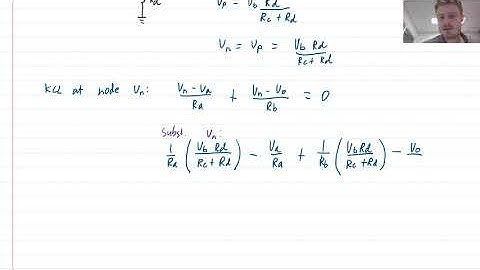 Rd
Vp = Vb Rd / Rc + Rd
Vn = Vp = Vb Rd / Rc + Rd
KCL at node Vn: Vn - Va / Ra + Vn - Vo / Rb = 0
Subst. Vn:
1 / Ra ( Vb Rd / Rc + Rd ) - Va / Ra + 1 / Rb ( Vb Rd / Rc + Rd ) - Vo